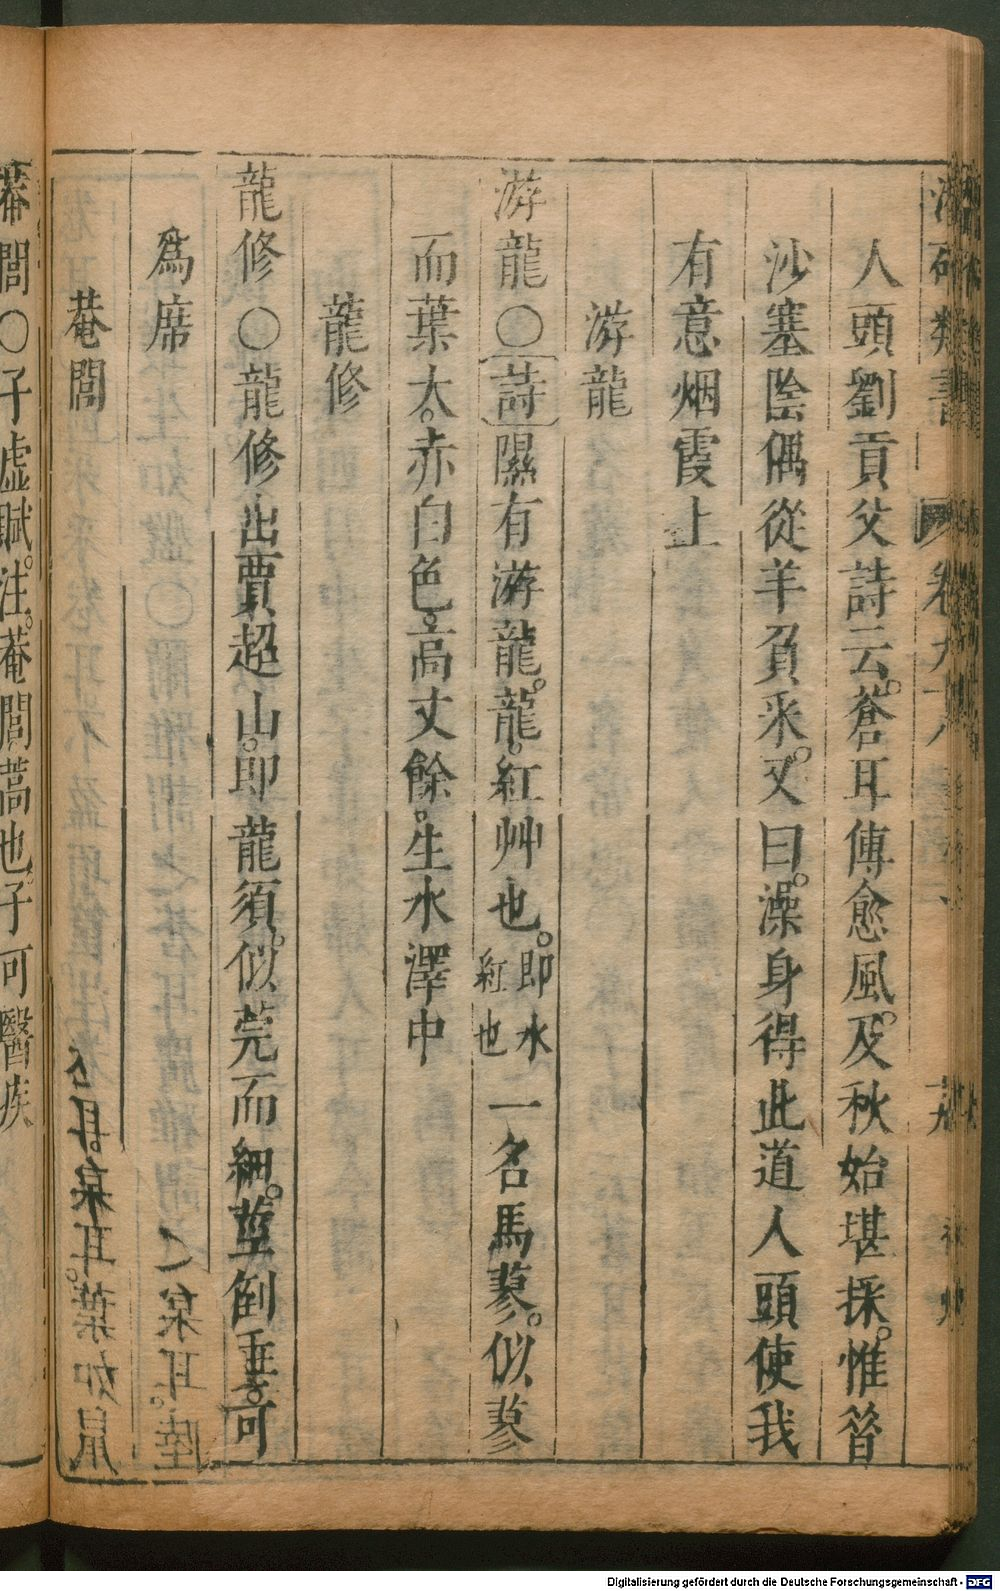 人頭劉貢父詩云。蒼耳傳愈風。及秋始堪採。惟簪
沙塞陰偶從羊負來。又曰。澡身得此道人頭使我
有意烟霞上
游龍
游龍〇詩隰有游龍。龍。紅艸也。即水紅也一名馬蓼。似蓼
而葉大。赤白色。高丈餘。生水澤中
龍修
龍修〇龍修出賈超山。即龍須。似莞而細。莖倒垂。可
為席
菴閭
菴閭〇子虛賦。注。菴閭。蒿也子可醫疾
Digitalisierung gefördert durch die Deutsche Forschungsgemeinschaft - DFG